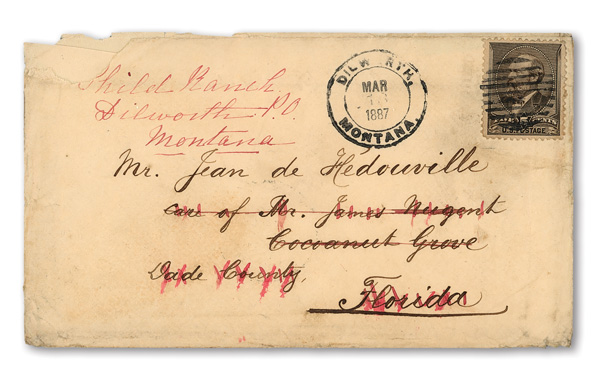 Shild Ranch,
Dilworth P.O.
Montana
DILWORTH,
MAR
1887
MONTANA.
U.S. POSTAGE
Mr. Jean de Hedouville
care of Mr. James Nugent
Cocoanut Grove
Dade County,
Florida